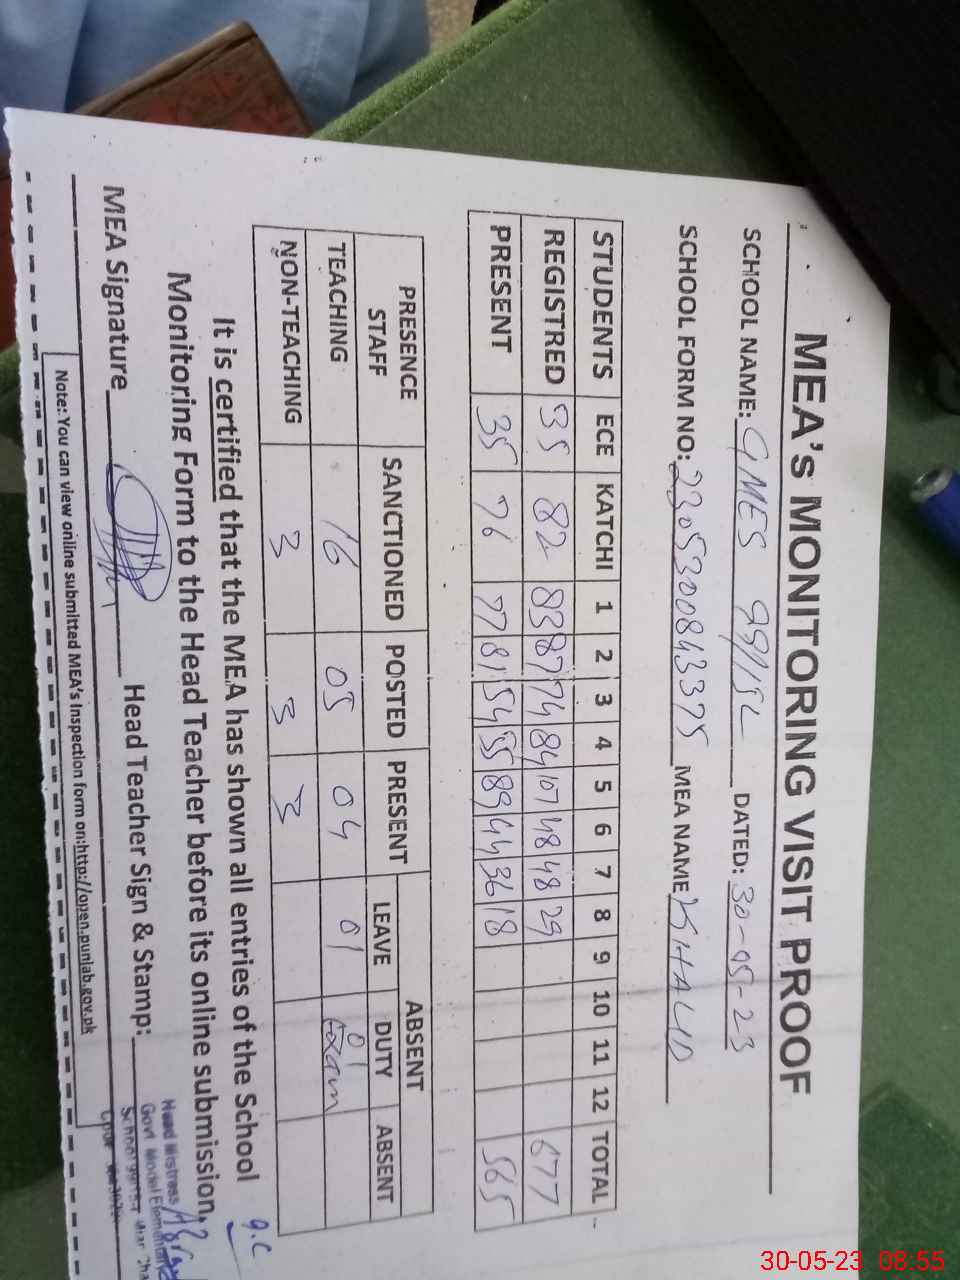 MEA's MONITORING VISIT PROOF
SCHOOL NAME: GMES 99/15L DATED: 30-05-23
SCHOOL FORM NO: 2305300843375 MEA NAME KHALID
STUDENTS ECE KATCHI 1 2 3 4 5 6 7 8 9 10 11 12 TOTAL
REGISTRED 35 82 83 87 74 84 107 48 48 29 677
PRESENT 35 76 77 81 54 55 89 44 36 18 565
PRESENCE STAFF SANCTIONED POSTED PRESENT ABSENT
LEAVE DUTY ABSENT
TEACHING 16 05 04 01 01 Exam
NON-TEACHING 3 3 3
It is certified that the MEA has shown all entries of the School
Monitoring Form to the Head Teacher before its online submission.
MEA Signature Head Teacher Sign & Stamp:
Head Mistress
Govt Model Elementary
School 99/15-L Mian Cha
Note: You can view online submitted MEA's Inspection form on:http://open.punjab.gov.pk
30-05-23 08:55